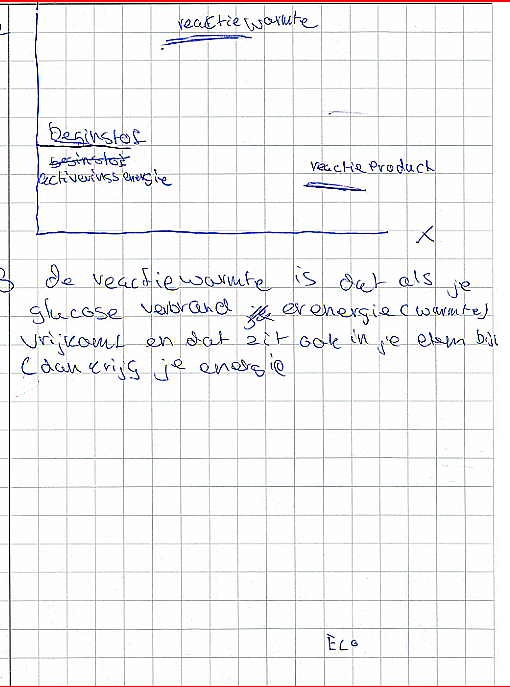 reactiewarmte
beginstof
beginstof
activeringsenergie
reactieproduct
X
3 de reactiewarmte is dat als je
glucose verbrand er energie (warmte)
vrijkomt en dat zit ook in je eten bij
(dan krijg je energie